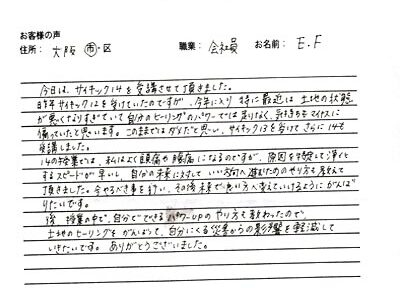 お客様の声
住所： 大阪 市・区 職業： 会社員 お名前： E.F
今日は、サイキック14を受講させて頂きました。
昨年サイキック12を受けていたのですが、今年に入り特に最近は土地の状態
が悪くなりすぎていて自分のヒーリングのパワーでは足りなく、気持ちもマイナスに
偏っていたと思います。このままではダメだと思い、サイキック13を受けてさらに14も
受講しました。
14の授業では、私はよく頭痛や腰痛になるのですが、原因を特定して浄化
するスピードが早いし、自分の未来に対していい方向へ進むためのやり方も教えて
頂きました。今やるべき事を行い、その後未来で良い方へ変えていけるようにがんば
りたいです。
後、授業の中で、自分でできるパワーUPのやり方も教わったので、
土地のヒーリングをがんばって、自分にくる災害からの影響を軽減して
いきたいです。ありがとうございました。